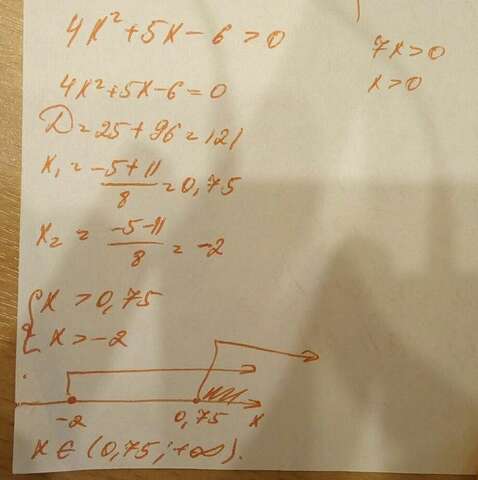 4x²+5x-6>0
4x²+5x-6=0
D=25+96=121
x₁=(-5+11)/8=0,75
x₂=(-5-11)/8=-2
{x>0,75
x>-2
-2 0,75 x
x∈(0,75;+∞).
7x>0
x>0